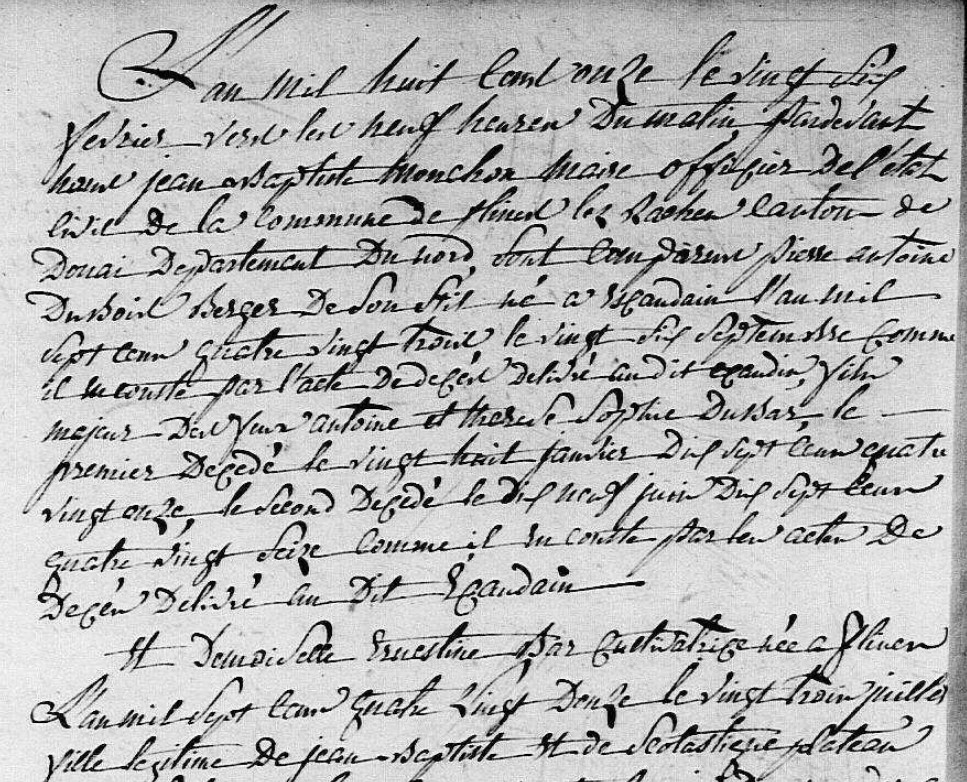 L'an mil huit Cent onze le vingt six
fevrier vers les neuf heures Du matin pardevant
nous jean Baptiste Monchon Maire officier De l'état
Civil de la Commune de flines lez Raches Canton de
Douai Departement Du nord, sont Comparus pierre antoine
DuBois Berger De son Etat né a Escaudain l'an mil
sept cens quatre vingt trois le vingt six septembre Comme
il en conste par l'acte De decés Delivré au dit Escaudin, fils
majeur Des feux antoine et therese Sophie Dubar, le
premier Decedé le vingt huit janvier Dix sept Cens quatre
vingt onze, le second Decedé le Dix neuf juin Dix sept Cens
quatre vingt seize Comme il en conste par les actes De
Decés Delivré au Dit Escaudain
Et Demoiselle Ernestine Par Cultivatrice née a flines
L'an mil sept Cens quatre vingt Douze le vingt trois juillet
fille legitime De jean Baptiste Et de Scolastique plateau